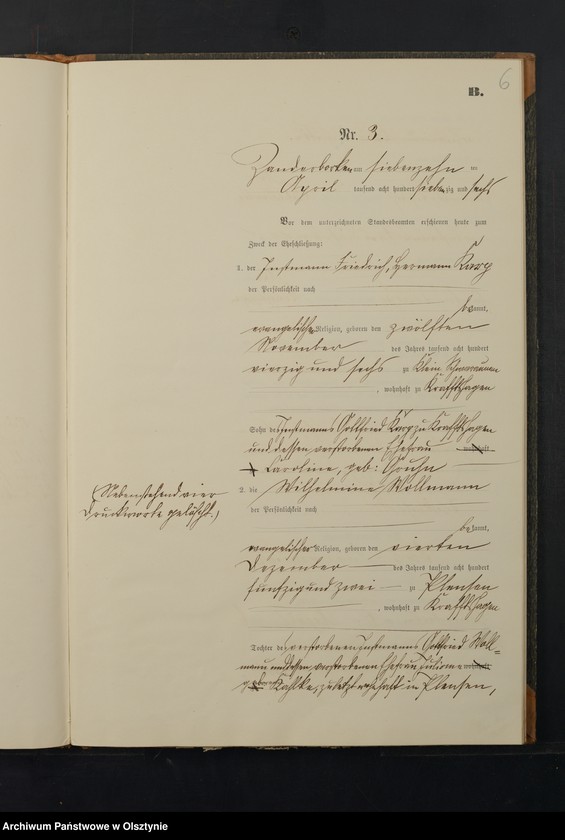 6
B.
Nr. 3.
am siebenzehn ten
April tausend acht hundert siebenzig und sechs
Vor dem unterzeichneten Standesbeamten erschienen heute zum
Zweck der Eheschließung:
1. der Instmann Friedrich, Hermann Karp
der Persönlichkeit nach
bekannt,
evangelischer Religion, geboren den zwölften
November des Jahres tausend acht hundert
vierzig und sechs zu Klein
, wohnhaft zu Krafftshagen
Sohn des Instmanns Gottfried Karp zu Krafftshagen
und dessen verstorbenen Ehefrau wohnhaft
Caroline, geb: Gruhn
(Nebenstehend vier
Druckworte gelöscht.)
2. die Wilhelmine Wollmann
der Persönlichkeit nach
bekannt,
evangelischer Religion, geboren den vierten
Dezember des Jahres tausend acht hundert
fünfzig und zwei zu Plensen
, wohnhaft zu Krafftshagen
Tochter des verstorbenen Instmanns Gottfried Woll-
mann und dessen verstorbenen Ehefrau Juliane wohnhaft
Kahlke, zuletzt wohnhaft in Plensen,
Archiwum Państwowe w Olsztynie